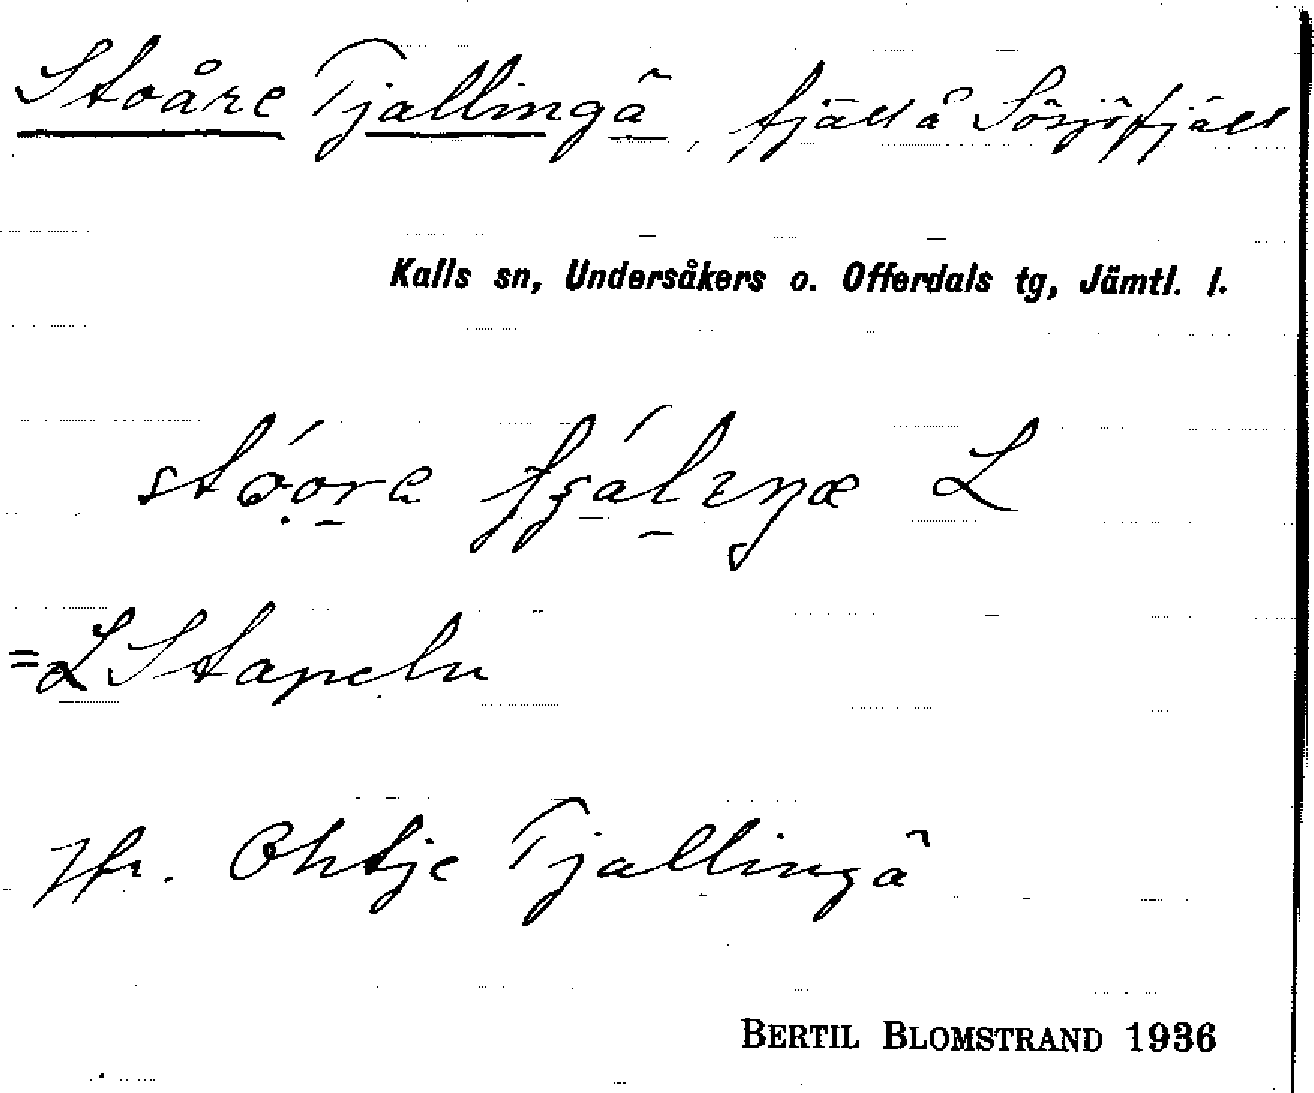 Stoåre Tjallingâ, fjäll å Sösjöfjäll
Kalls sn, Undersåkers o. Offerdals tg, Jämtl. l.
L
= L Stapeln
Jfr. Ohtje Tjallingâ
BERTIL BLOMSTRAND 1936